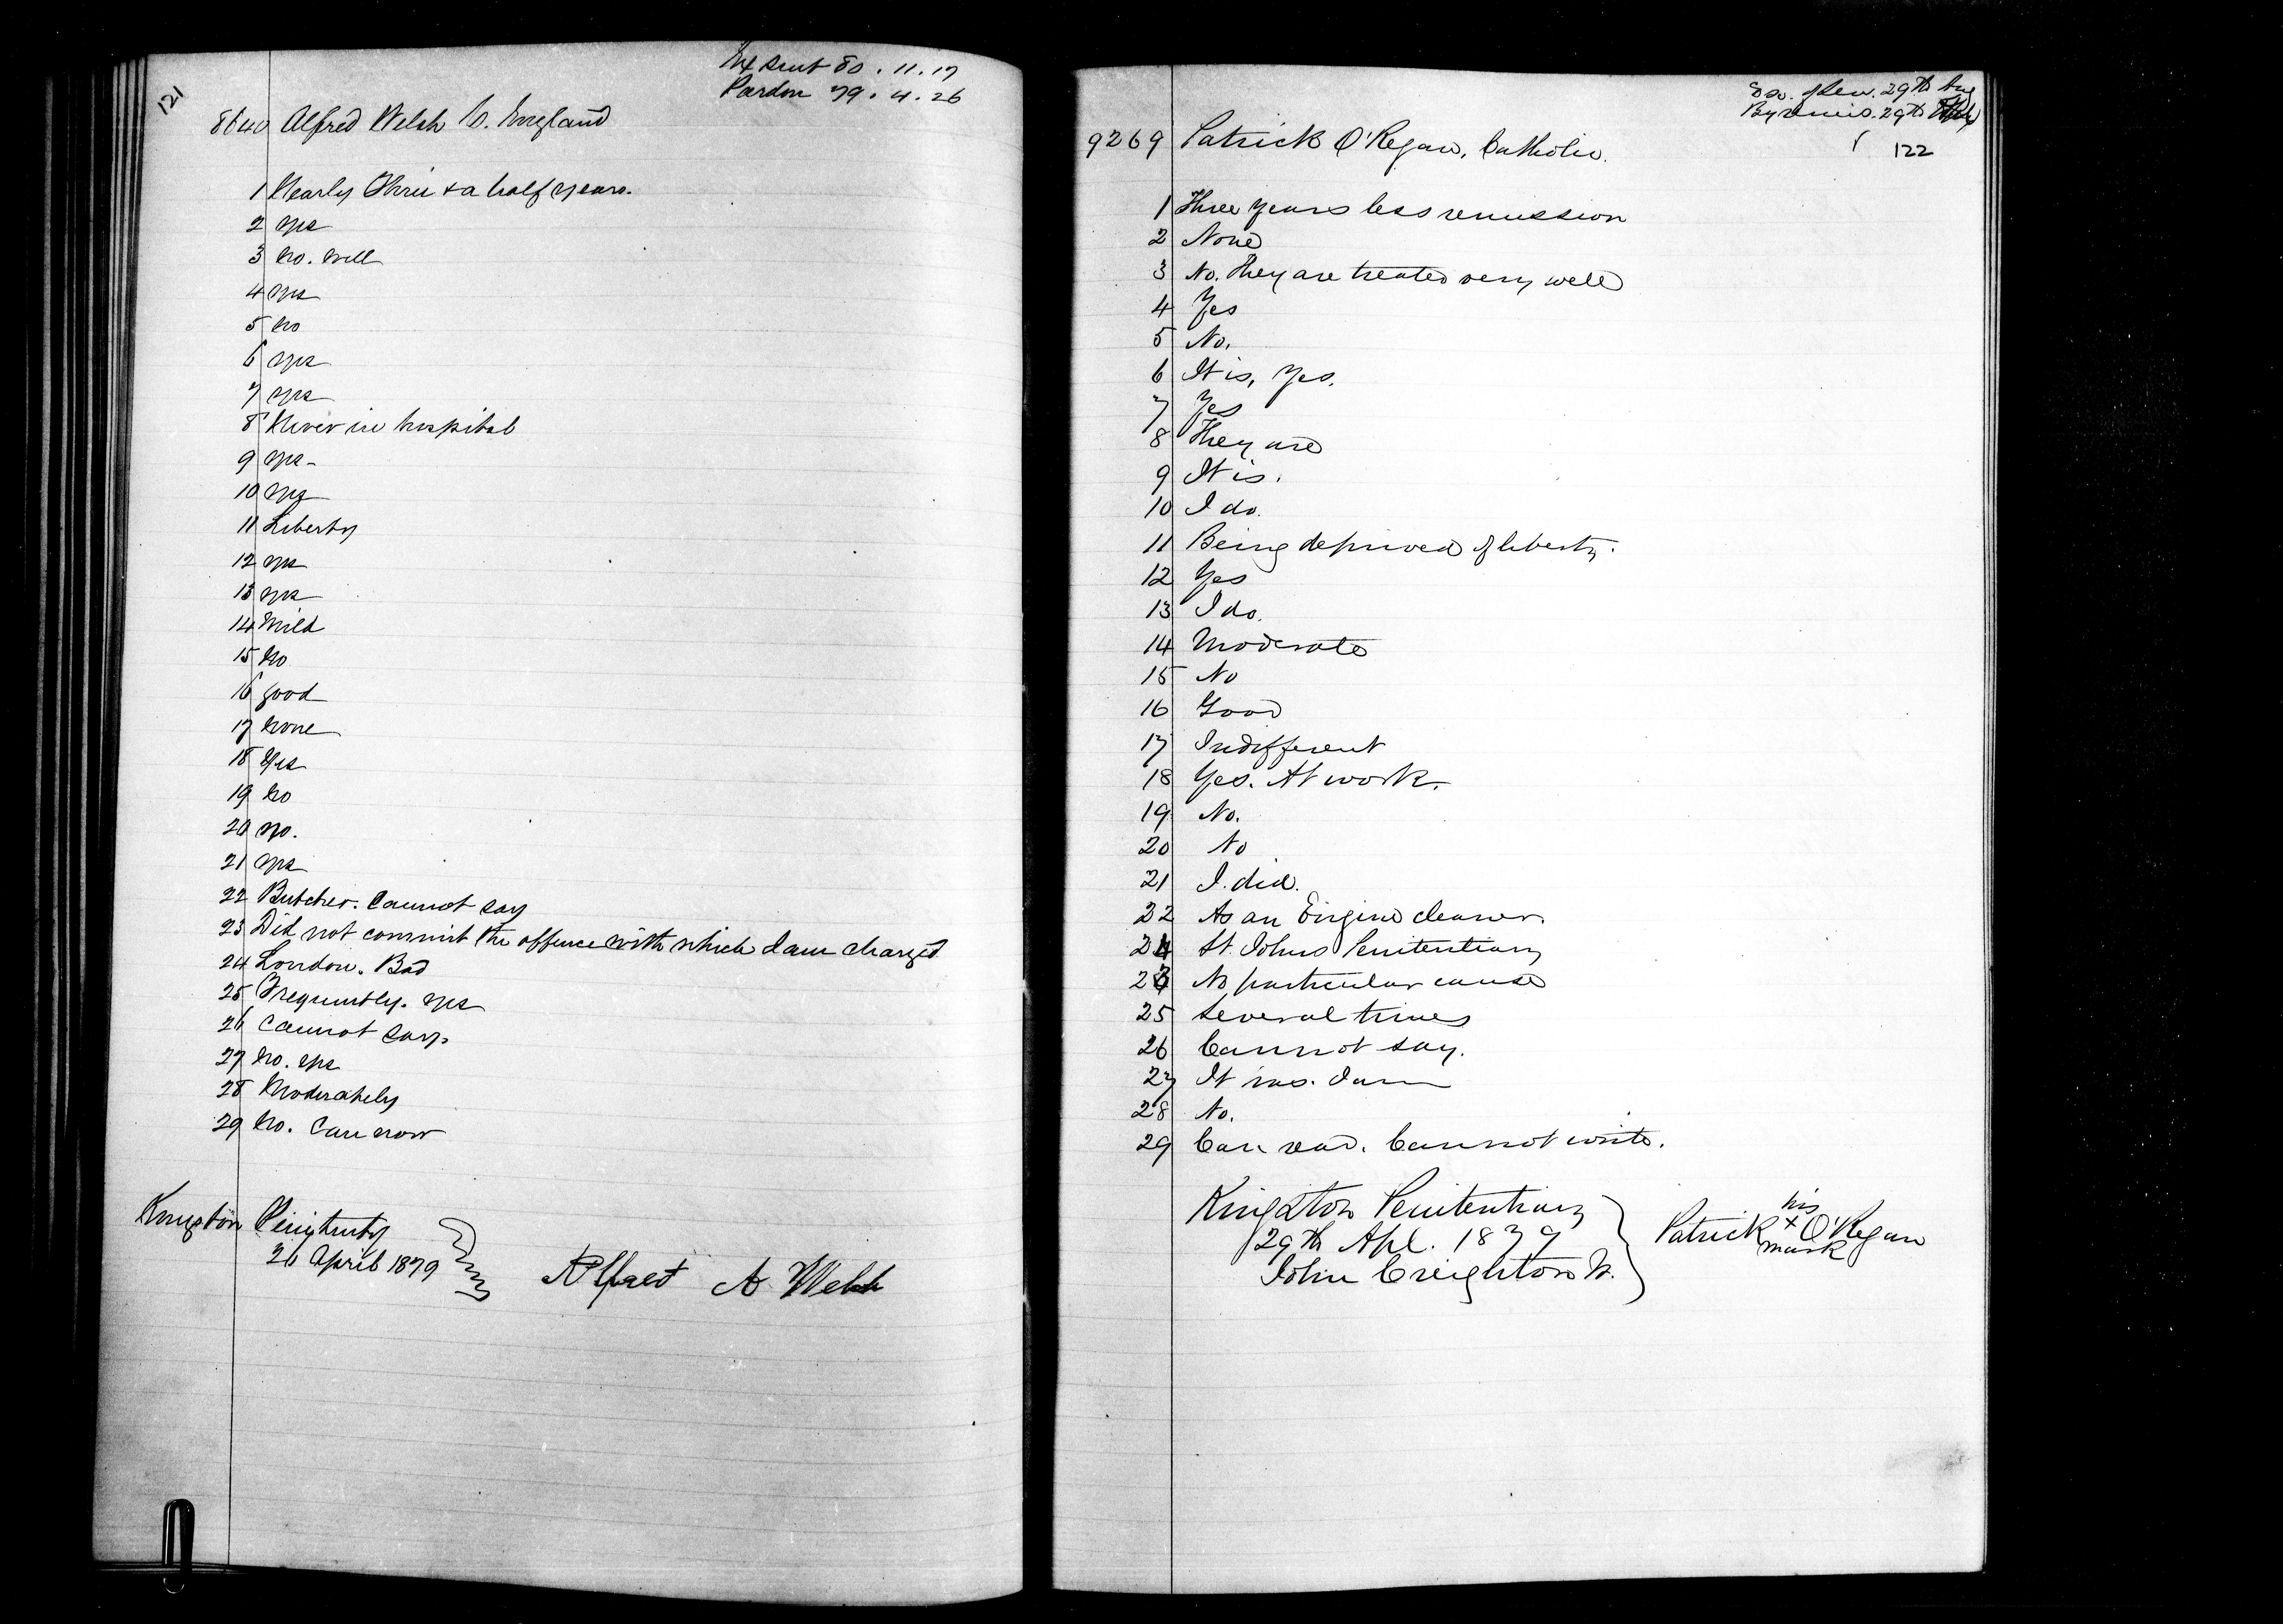 121
Ex sent 80. 11. 17
Pardon 79. 4. 26
8640 Alfred Welsh C. England
1 Nearly Three & a half years.
2 yes
3 No. well
4 yes
5 No
6 yes
7 yes
8 Never in hospital
9 yes -
10 yes
11 Liberty
12 yes
13 yes
14 Mild
15 No
16 good
17 None
18 Yes
19 No
20 No.
21 yes
22 Butcher. Cannot say
23 Did not commit the offence with which I am charged
24 London. Bad
25 Frequently. yes
26 Cannot say.
27 No. yes
28 Moderately
29 No. Can now
Kingston Penitenty
26 April 1879
Alfred A Welsh
Exp. of sen. 29th Aug
By remis. 29th
122
9269 Patrick O'Regan, Catholic.
1 Three years less remission
2 None
3 No. They are treated very well
4 Yes
5 No.
6 It is, Yes.
7 Yes
8 They are
9 It is.
10 I do.
11 Being deprived of liberty.
12 Yes
13 I do.
14 Moderate
15 No
16 Good
17 Indifferent
18 Yes. At work.
19 No.
20 No
21 I did.
22 As an Engine cleaner.
24 St. Johns Penitentiary
23 No particular cause
25 Several times
26 Cannot say.
27 It was. I am
28 No.
29 Can read. Cannot write.
Kingston Penitentiary
29th Apl. 1879
John Creighton W.
his
Patrick x O'Regan
mark